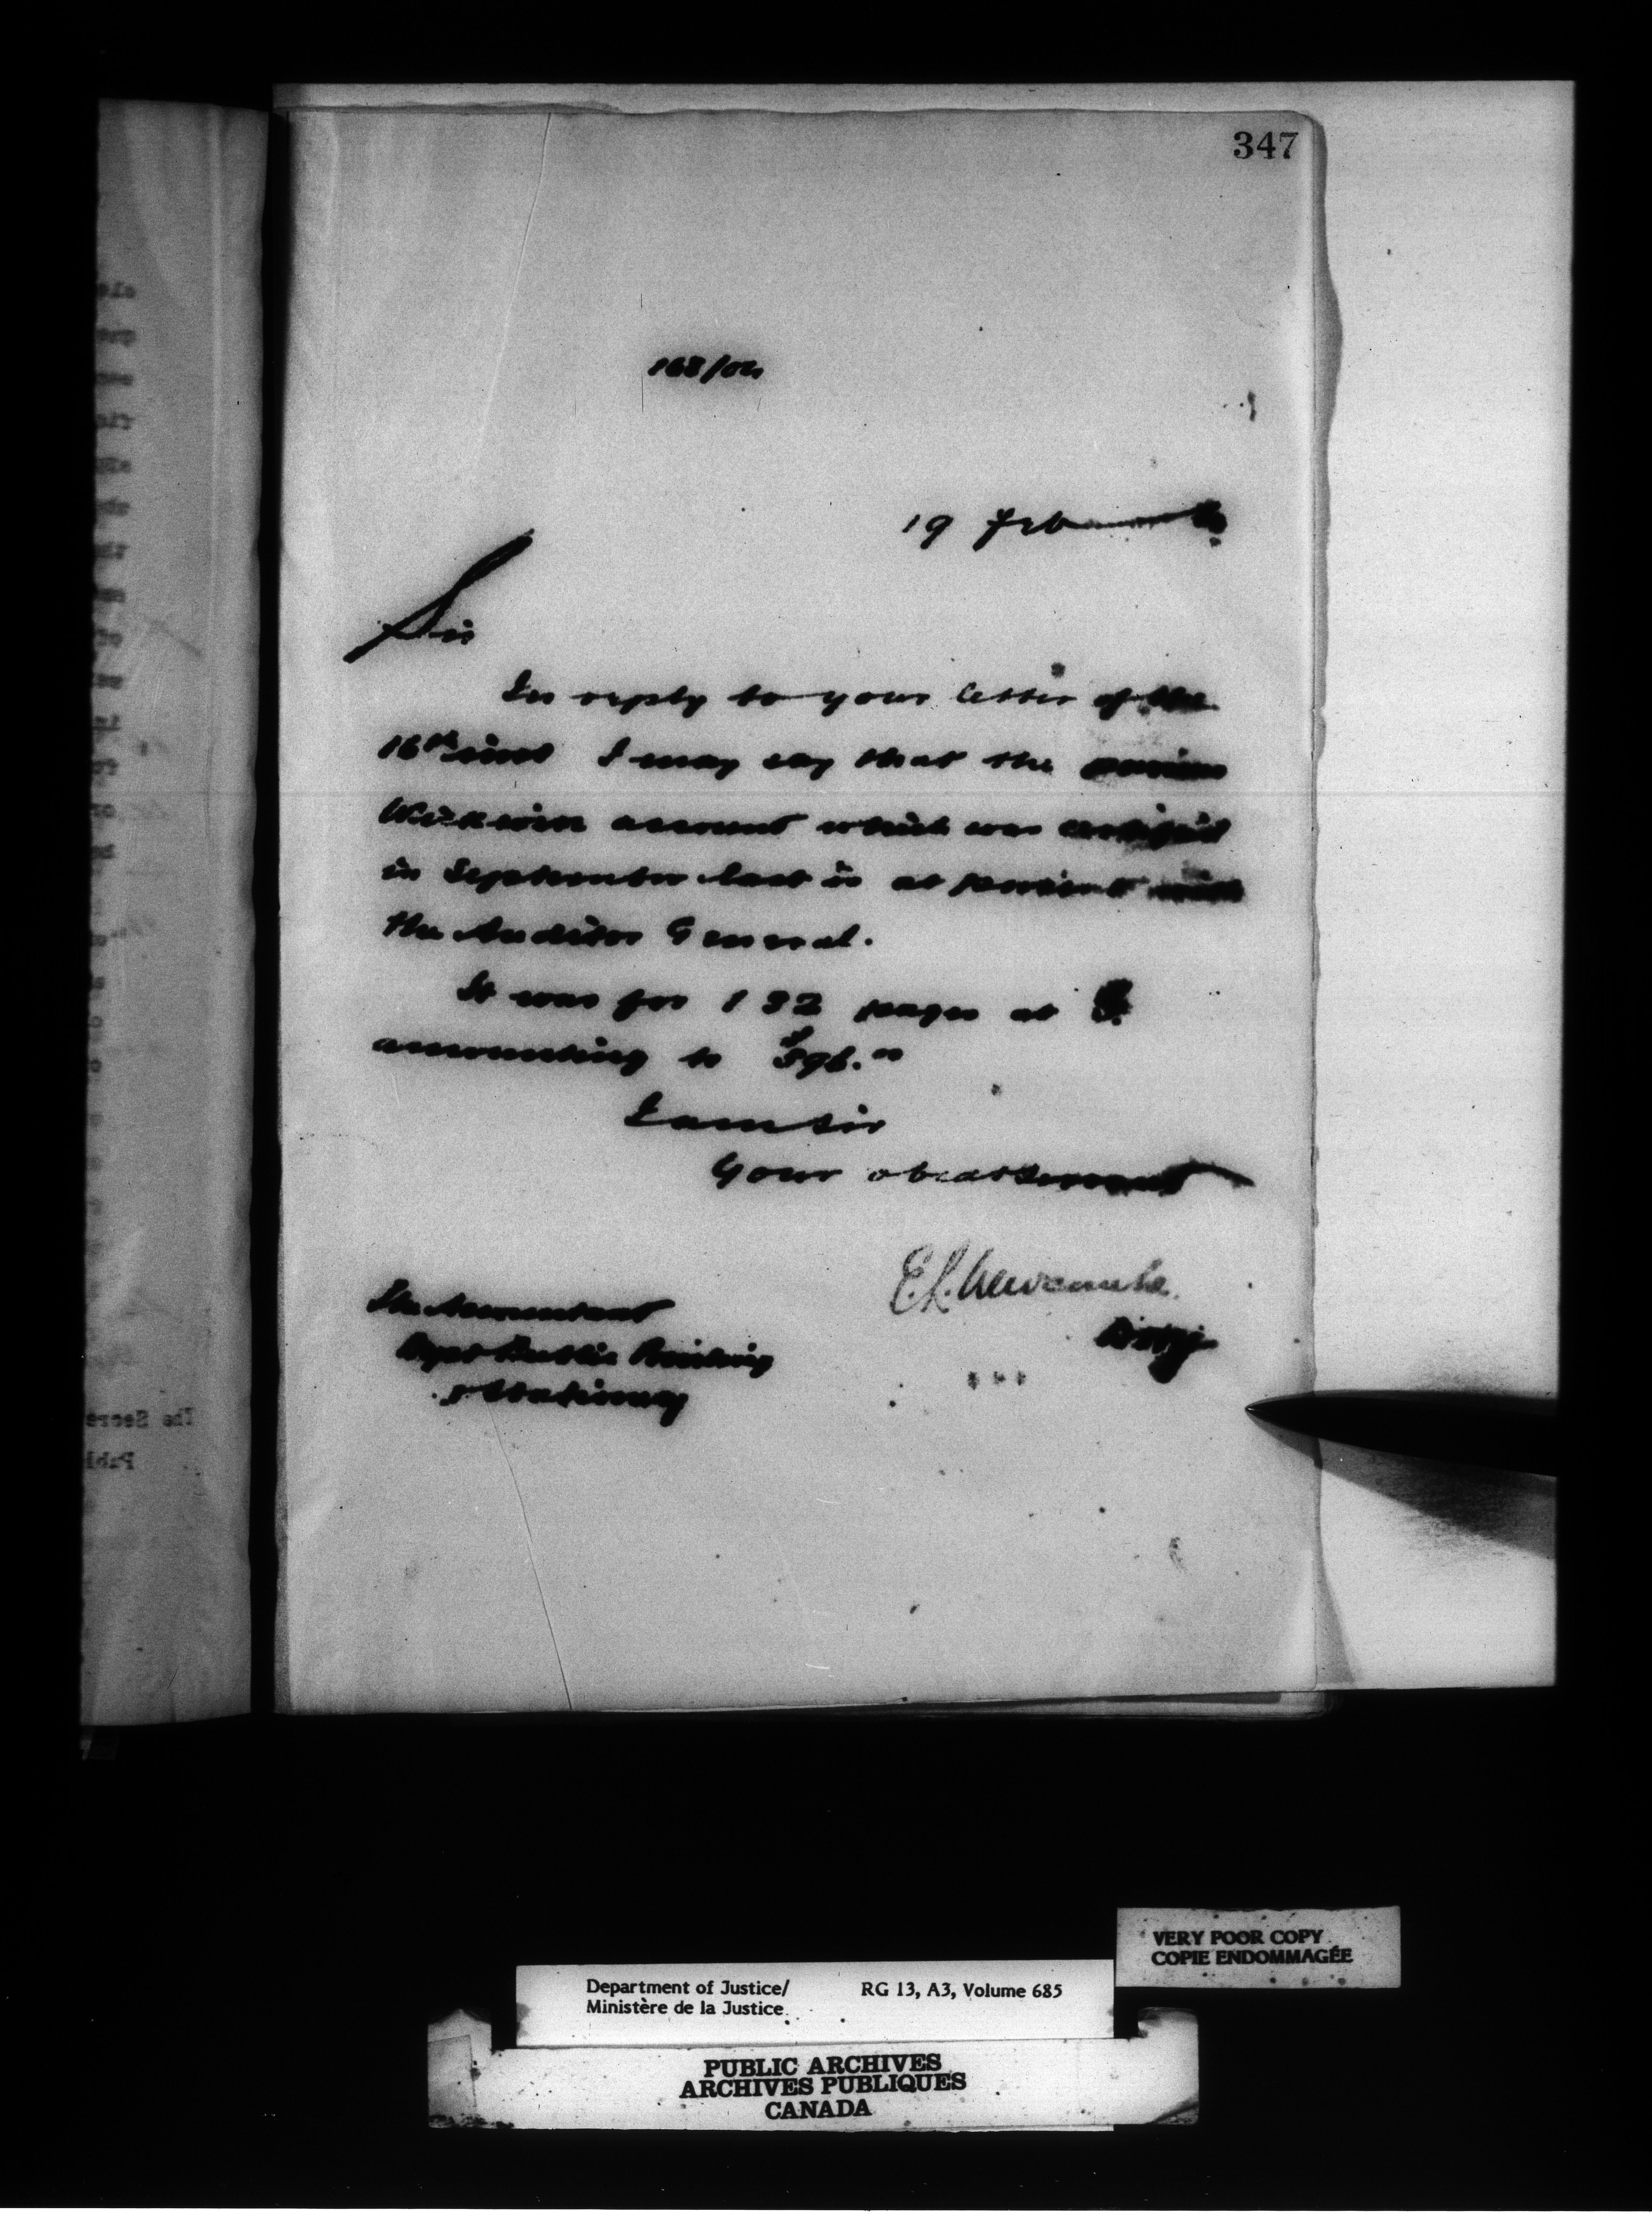 347
168/04
19 Feb
Sir
In reply to your letter of the
16th inst I may say that the
account which was certified
in September last is at present with
the Auditor General.
It was for 132 pages at
amounting to $396.00
I am Sir
Your obedt Servant
E.L. Newcombe.
DMJ
The Accountant
Dept Public Printing
& Stationery
The Secre
Publi
VERY POOR COPY
COPIE ENDOMMAGÉE
Department of Justice/ RG 13, A3, Volume 685
Ministère de la Justice
PUBLIC ARCHIVES
ARCHIVES PUBLIQUES
CANADA